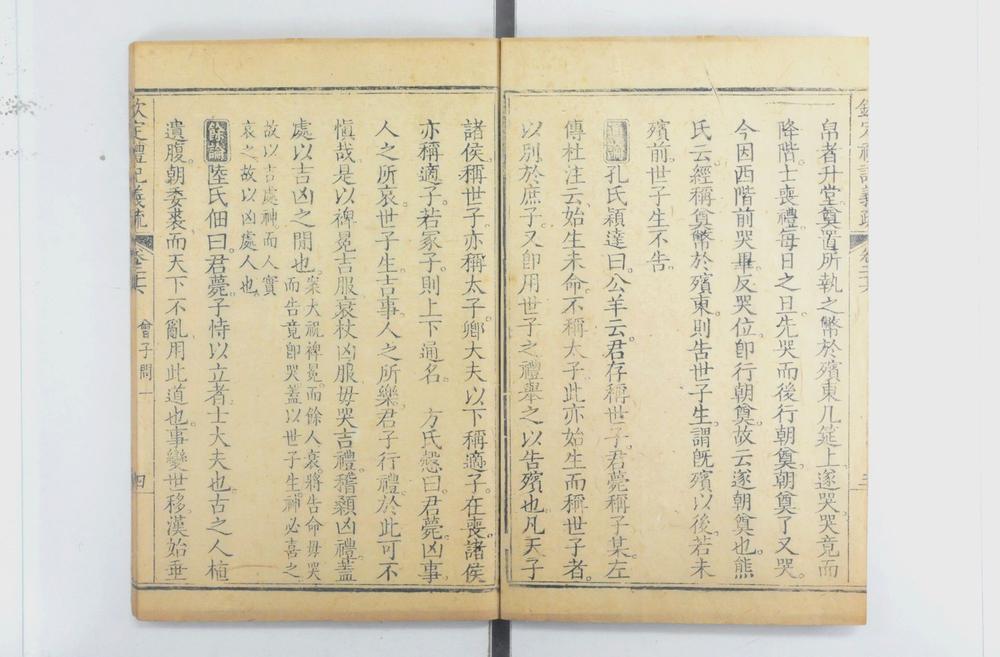 欽定禮記義疏 卷二十六 三
帛者升堂奠置所執之幣於殯東几筵上遂哭哭竟而
降階士喪禮每日之旦先哭而後行朝奠朝奠了又哭
今因西階前哭畢反哭位卽行朝奠故云遂朝奠也熊
氏云經稱奠幣於殯東則告世子生謂旣殯以後若未
殯前世子生不告
通論孔氏穎達曰公羊云君存稱世子君薨稱子某左
傳杜注云始生未命不稱太子此亦始生而稱世子者
以別於庶子又卽用世子之禮舉之以告殯也凡天子
諸侯稱世子亦稱太子卿大夫以下稱適子在喪諸侯
亦稱適子若冢子則上下通名 方氏慤曰君薨凶事
人之所哀世子生吉事人之所樂君子行禮於此可不
愼哉是以裨冕吉服衰杖凶服毋哭吉禮稽顙凶禮蓋
處以吉凶之閒也案大祝裨冕而餘人衰將告命毋哭
而告竟卽哭蓋以世子生神必喜之
故以吉處神而人實
哀之故以凶處人也
餘論陸氏佃曰君薨子恃以立者士大夫也古之人植
遺腹朝委裘而天下不亂用此道也事變世移漢始垂
欽定禮記義疏 卷二十六 曾子問一 四